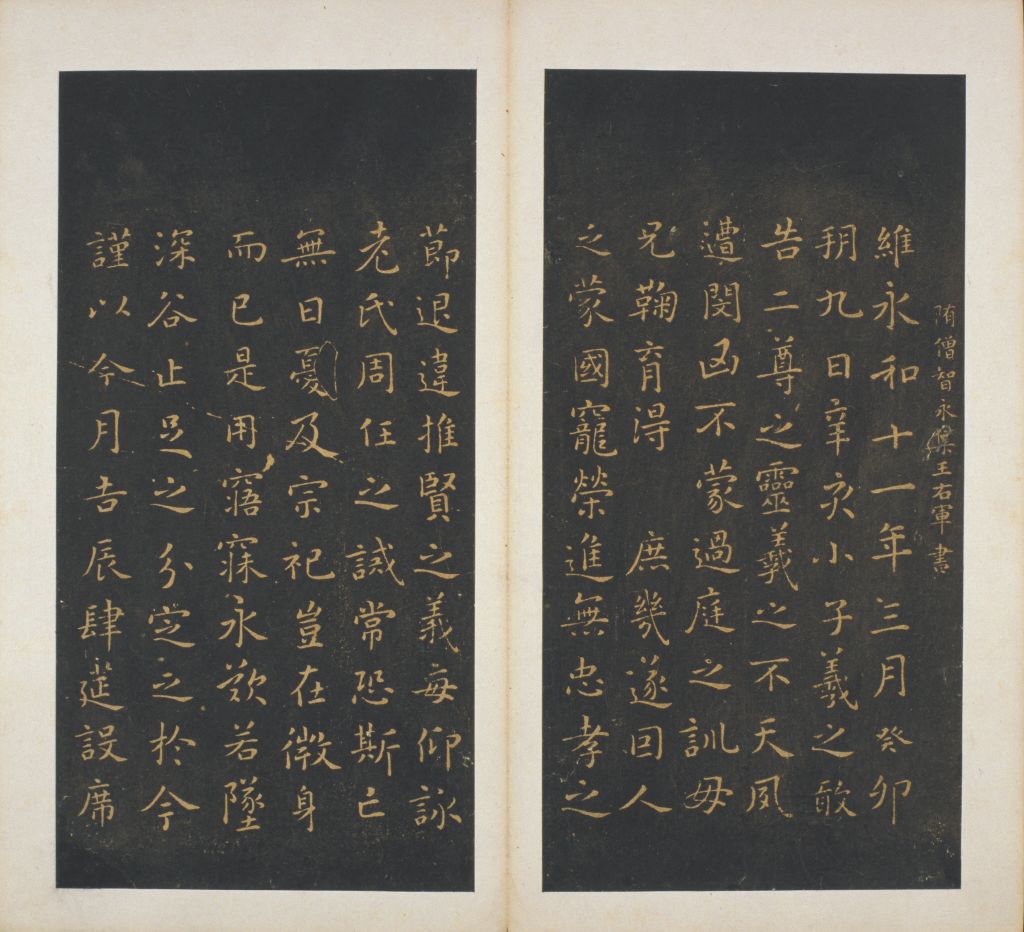 隋僧智永集王右軍書
維永和十一年三月癸卯
朔九日辛亥小子羲之敢
告二尊之靈羲之不天夙
遭閔凶不蒙過庭之訓母
兄鞠育得 庶幾遂因人
之蒙國寵榮進無忠孝之
節退違推賢之義每仰詠
老氏周任之誡常恐斯亡
無日憂及宗祀豈在微身
而已是用寤寐永歎若墜
深谷止足之分定之於今
謹以今月吉辰肆筵設席